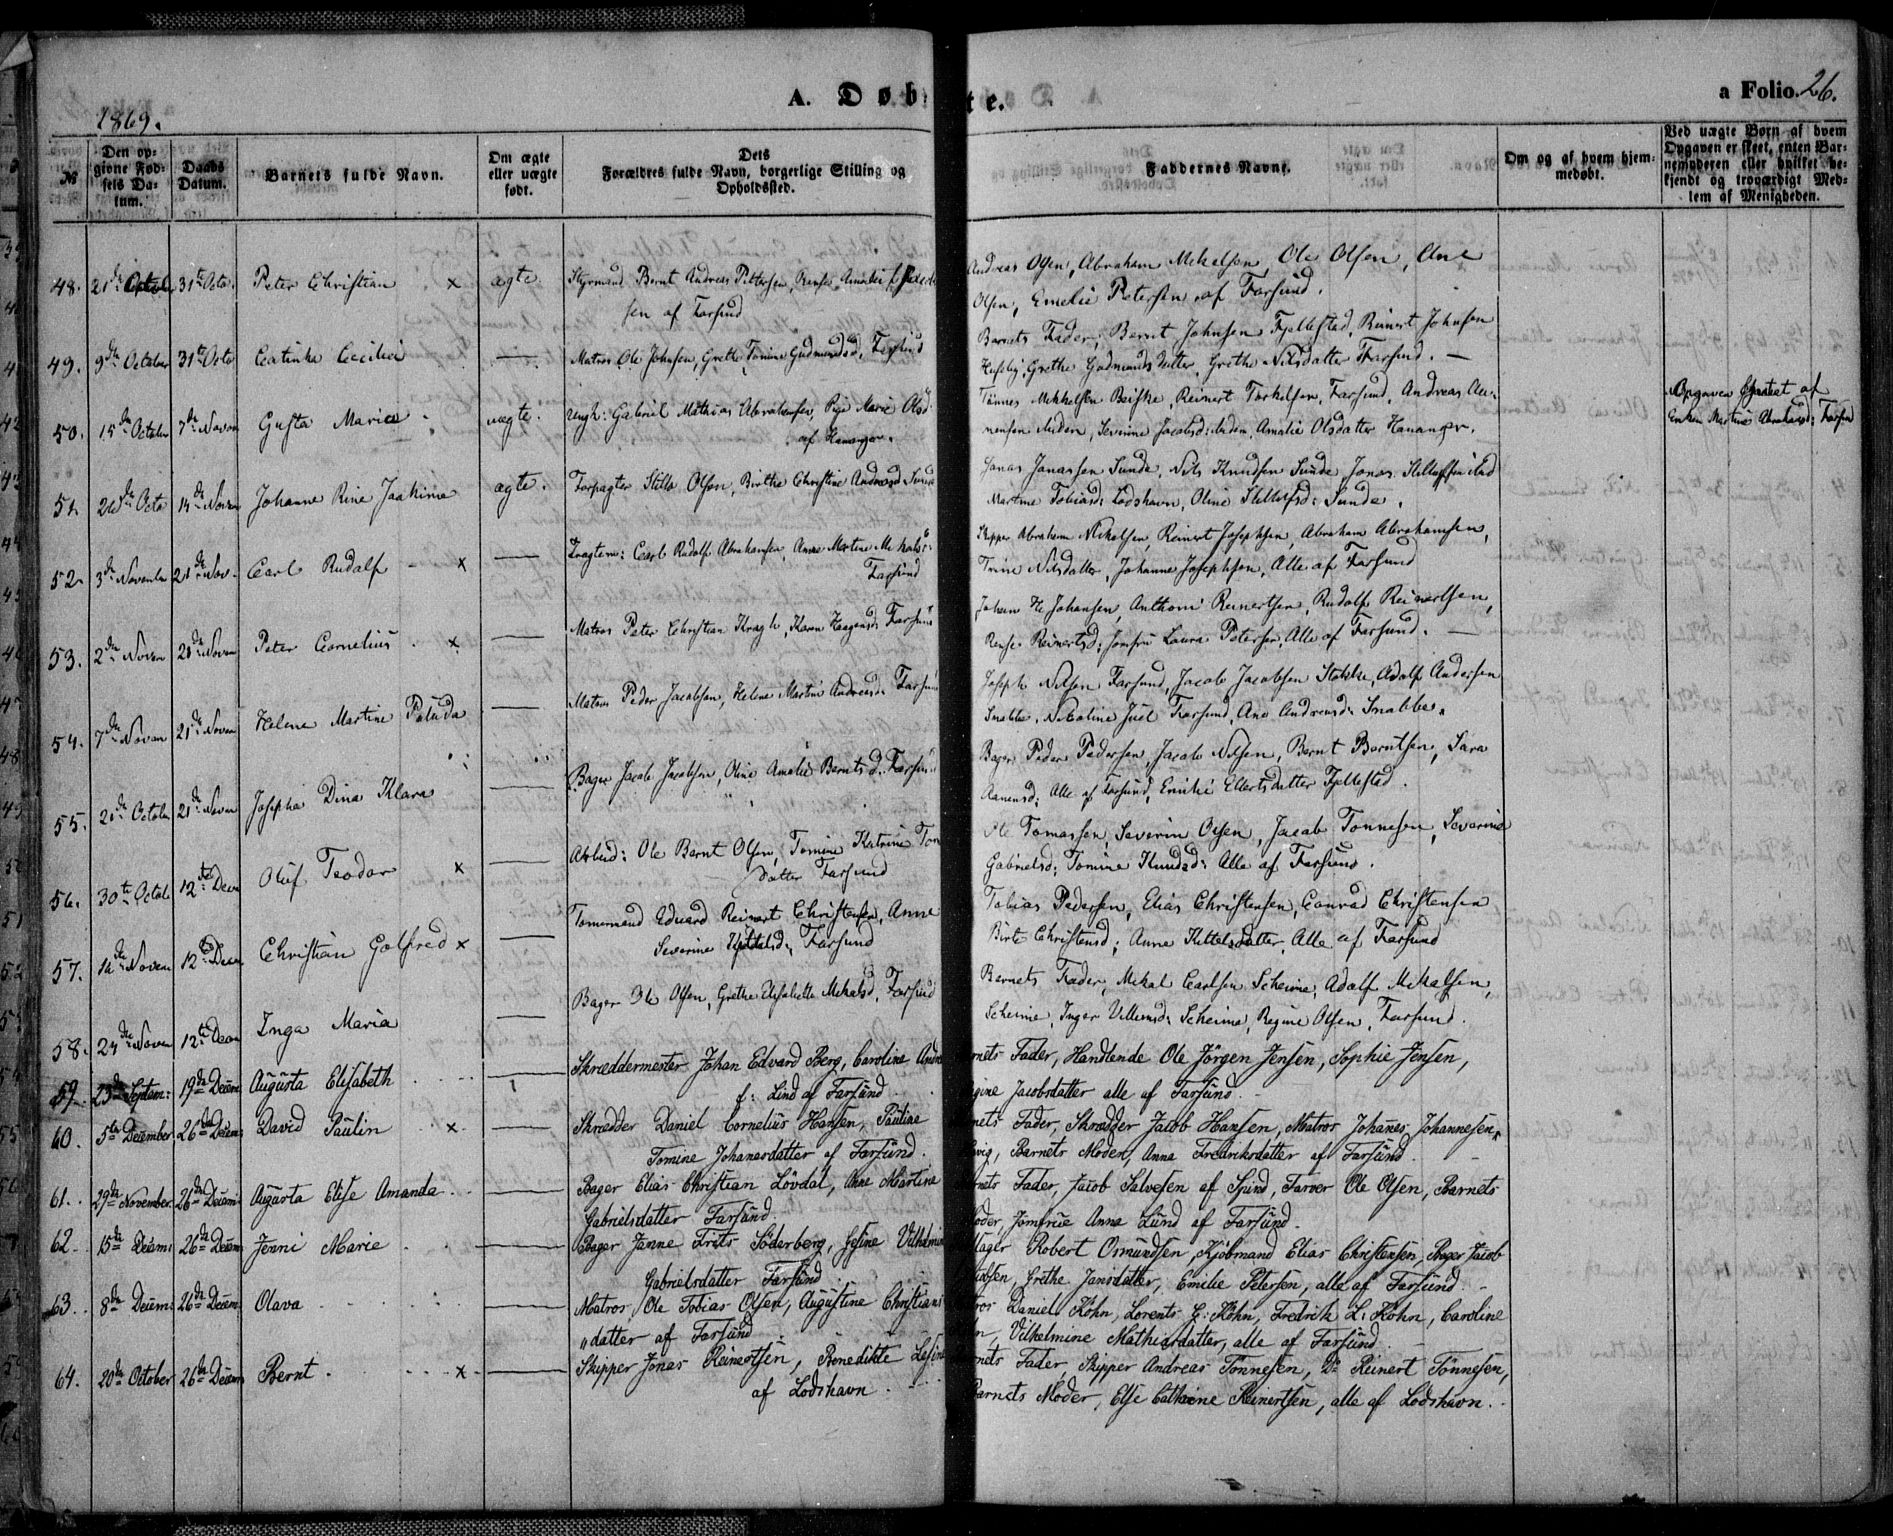 A. Døbte.
a Folio. 26.
1869.
№
Den opgivne Fødsels Datum.
Daabs Datum.
Barnets fulde Navn.
Om ægte eller uægte født.
Dets Forældres fulde Navn, borgerlige Stilling og Opholdssted.
Faddernes Navne.
Om og af hvem hjemmedøbt.
Ved uægte Børn af hvem Opgaven er skeet, enten Barnemoderen eller hvilket bekjendt og troværdigt Medlem af Menigheden.
48. 21de Octob 31te Octo. Peter Christian x ægte Styrmand Bernt Andreas Pettersen,
sen af Farsund
Andreas Olsen, Abraham Mekalsen Ole Olsen, Ane
Olsen, Emelie Petersen af Farsund.
49. 9de October 31te Octo Catinka Cecilie — Matros Ole Johnsen, Grethe Tomine Gudmundsd, Farsund
Barnets Fader, Bernt Johnsen Fjellestad, Reinert Johnsen
Huseby, Grethe Gudmunds Datter, Grethe Nilsdatter Farsund. —
50. 15de October 7de Novem Gusta Marie uægte. Ungk: Gabriel Mathias Abrahamsen, Pige Marie Olsd
af Hananger.
Tønnes Mekkelsen Beiske, Reinert Terkelsen, Farsund, Andreas
Severine Jacobsd: Amalie Olsdatter Hananger.
Opgaven af
Enken Martine Abrahamsd: Farsund
51. 26de Octo 14de Novem Johanne Rine Jaakine ægte. Forpagter Olsen, Birthe Christine Andreasd Sunde
Jonas Janassen Sunde, Nils Knudsen Sunde, Jonas
Martine Tobiasd: Lodshavn, Oline Sunde.
52. 3de November 21de Nov. Carl Rudolf x — Carl Rudolf Abrahamsen, Anne Martine Mekalsd:
Farsund
Skipper Abraham Mikalsen, Reinert Josephsen, Abraham Abrahamsen,
Trine Nilsdatter, Johanne Josephsen, Alle af Farsund
53. 2de Novem 21de Novem Peter Cornelius x — Matros Peter Christian Kragh, Karen Haagensd: Farsund
Johan H. Johansen, Anthoni Reinertsen, Rudolf Reinertsen,
Reinertsd: Jomfru Laura Petersen, Alle af Farsund. —
54. 7de Novem 21de Novem Helene Martine Paluda — Matros Peder Jacobsen, Helene Martine Andreasd: Farsund
Joseph Nilsen Farsund, Jacob Jacobsen Stokke, Adolf Andersen
Snabbe, Nicoline Juel Farsund, Ane Andreasd: Snabbe.
55. 21de October 21de Novem Josepha Dina Klara — Bager Jacob Jacobsen, Oline Amalie Berntsd: Farsund
Bager Peder Pedersen, Jacob Nilsen, Bernt Berntsen, Sara
Aanensd: Alle af Farsund, Emilie Ellertsdatter Fjellestad.
56. 30te Octob 12te Decem Oluf Teodor x — Arbeid: Ole Bernt Olsen, Tomine Katrine Tom
datter Farsund
Ole Tomassen, Severin Olsen, Jacob Tønnesen, Severine
Gabrielsd, Tomine Knudsd: Alle af Farsund.
57. 14de Novem 12te Decem Christian Golfred x — Tømermand Eduard Reinert Christensen, Anne
Severine Kittelsd: Farsund
Tobias Pedersen, Elias Christensen, Conrad Christensen
Birte Christensd: Anna Kittelsdatter, Alle af Farsund
58. 24de Novem 12te Decem Inga Maria — Bager Ole Olsen, Grethe Elisabeth Mekalsd, Farsund
Barnets Fader, Mekal Carlsen Scheime, Adolf Mikalsen,
Scheime, Inger Villemsd: Scheime, Regine Olsen, Farsund.
59. 23de Septem: 19de Decem Augusta Elisabeth — Skræddermester Johan Edvard Berg, Caroline Andre
f: Lind af Farsund.
rnets Fader, Handlende Ole Jörgen Jensen, Sophie Jensen,
gine Jacobsdatter alle af Farsund.
60. 5te December 26de Decem David Paulin x — Skrædder Daniel Cornelius Hansen, Pauline
Tomine Johanesdatter af Farsund.
nets Fader, Skrædder Jacob Hansen, Matros Johanes Johannesen,
vig, Barnets Moder, Anna Fredriksdatter af Farsund.
61. 29de November 26de Decem: Augusta Elise Amanda — Bager Elias Christian Lövdal, Anne Martine
Gabrielsdatter Farsund.
nets Fader, Jacob Salvesen af Spind, Farver Ole Olsen, Barnets
oder, Jomfrue Anna Lund af Farsund.
62. 15de Decem: 26de Decem: Jenni Marie — Bager Janne Frits Söderberg, Gesine Vilhelmin
Gabrielsdatter Farsund.
Robert Osmundsen, Kjöbmand Elias Christensen, Bager Jacob
Grethe Jansdatter, Emilie Petersen, alle af Farsund.
63. 8de Decem: 26de Decem: Olava — Matros Ole Tobias Olsen, Augustine Christians
"datter af Farsund
ros Daniel Köhn, Lorents L: Köhn, Fredrik L: Köhn, Caroline
Vilhelmine Mathiasdatter, alle af Farsund.
64. 20de October 26de Decem Bernt x — Skipper Jonas Reinertsen, Benedikte Gesine
af Lodshavn.
nets Fader, Skipper Andreas Tönnesen, Do Reinert Tönnesen,
Barnets Moder, Else Cathrine Reinertsen, alle af Lodshavn.